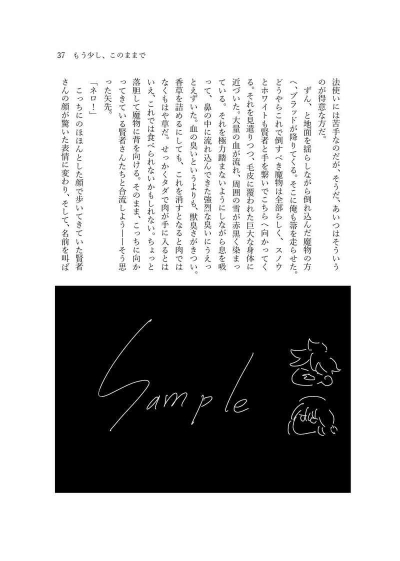 37　もう少し、このままで
法使いには苦手なのだが、そうだ、あいつはそういう
のが得意な方だ。
　ずん、と地面を揺らしながら倒れ込んだ魔物の方
へ、ブラッドが降りてくる。そこに俺も箒を走らせた。
どうやらこれで倒すべき魔物は全部らしく、スノウ
とホワイトも賢者と手を繋いでこちらへ向かってく
る。それを見遣りつつ、毛皮に覆われた巨大な身体に
近づいた。大量の血が流れ、周囲の雪が赤黒く染まっ
ている。それを極力踏まないようにしながら息を吸
って、鼻の中に流れ込んできた強烈な臭いにうえっ
とえずいた。血の臭いというよりも、獣臭さがきつい。
香草を詰めるにしても、これを消すとなると肉では
なくもはや草だ。せっかくタダで肉が手に入るとは
いえ、これでは食べられないかもしれない。ちょっと
落胆して魔物に背を向ける。そのまま、こっちに向か
ってきている賢者さんたちと合流しよう――そう思
った矢先。
「ネロ！」
　こっちにのほほんとした顔で歩いてきていた賢者
さんの顔が驚いた表情に変わり、そして、名前を叫ば
Sample